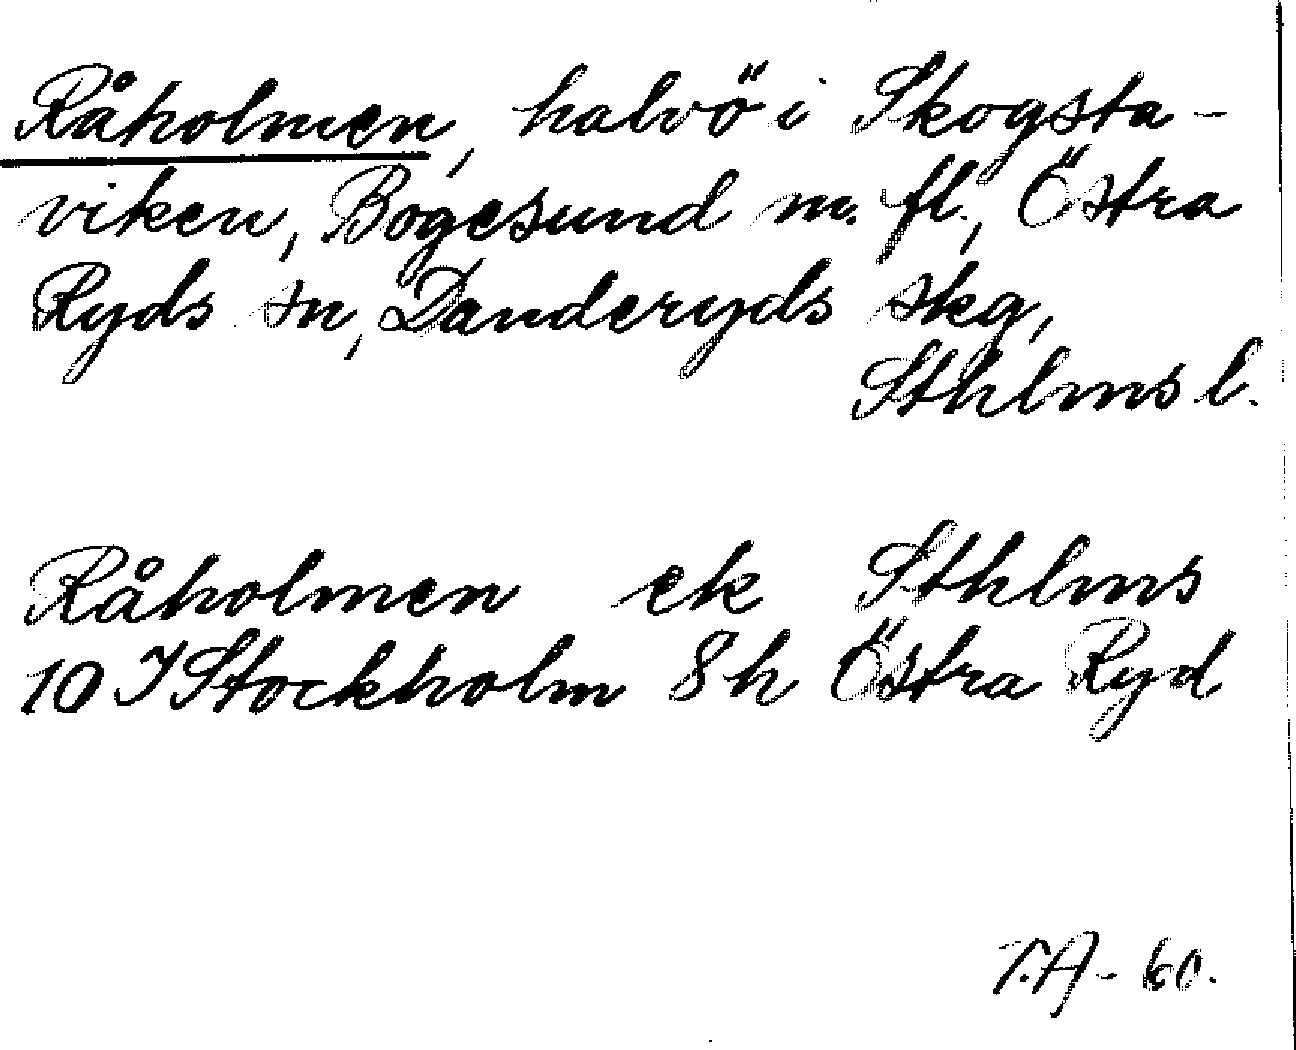 Råholmen, halvö i Skogsta-
viken, Bogesund m. fl., Östra
Ryds sn, Danderyds skg,
Sthlms l.
Råholmen ek Sthlms
10 I Stockholm 8h Östra Ryd
T.A- 60.